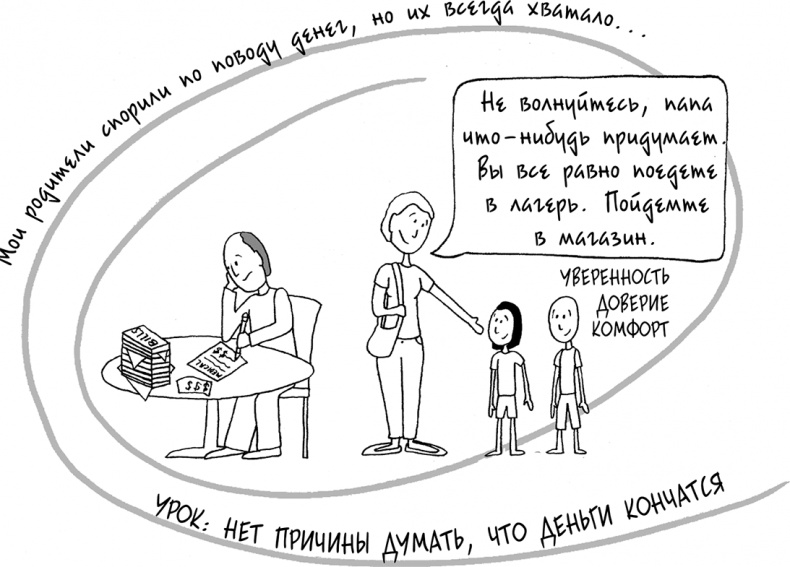 Мои родители спорили по поводу денег, но их всегда хватало...
Не волнуйтесь, папа
что-нибудь придумает.
Вы все равно поедете
в лагерь. Пойдемте
в магазин.
УВЕРЕННОСТЬ
ДОВЕРИЕ
КОМФОРТ
BILLS
$$$
MEDICAL
$$$
УРОК: НЕТ ПРИЧИНЫ ДУМАТЬ, ЧТО ДЕНЬГИ КОНЧАТСЯ